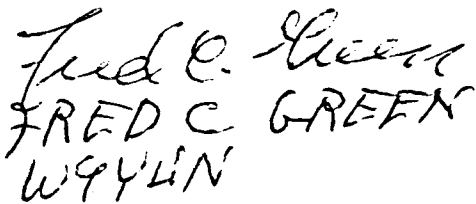 Fred C. Green
FRED C GREEN
W9YHN